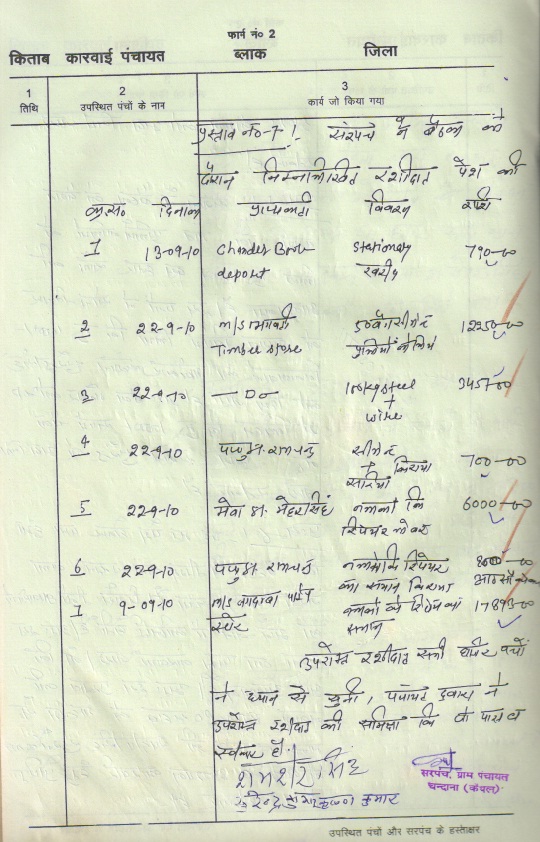 फार्म नं० 2
किताब कारवाई पंचायत ब्लाक जिला
1 2 3
तिथि उपस्थित पंचों के नाम कार्य जो किया गया
प्रस्ताव नं०-7 :- सरपंच ने बैठक के
दौरान निम्नलिखित रशीदात पेश की
क्र०सं० दिनांक विवरण राशि
1 13-09-10 Chander Book Stationary 790-00
deposit खरीद
2 22-9-10 M/s 12250-00
Timber store
3 22-9-10 — Do — 10 kg steel 3457-00
+
wire
4 22-9-10 पप्पु S/o रामचन्द्र सीमेन्ट 700-00
+ किराया
सरिया
5 22-9-10 मेवा S/o मेहरसिंह नलको कि 6000-00
रिपेयर लेबर
6 22-9-10 पप्पु S/o रामचन्द्र नलको कि रिपेयर 800-00
का समान किराया
7 9-09-10 M/s पाईप 17893-00
स्टोर समान
उपरोक्त रशीदात सभी हाजिर पंचों
ने ध्यान से सुनी, पंचायत द्वारा ने
उपरोक्त रशीदात की समिक्षा कि व पास व
स्वीकार है।
शमशेर सिंह
कृष्ण कुमार
सरपंच, ग्राम पंचायत
चन्दाना (कैथल)
उपस्थित पंचों और सरपंच के हस्ताक्षर